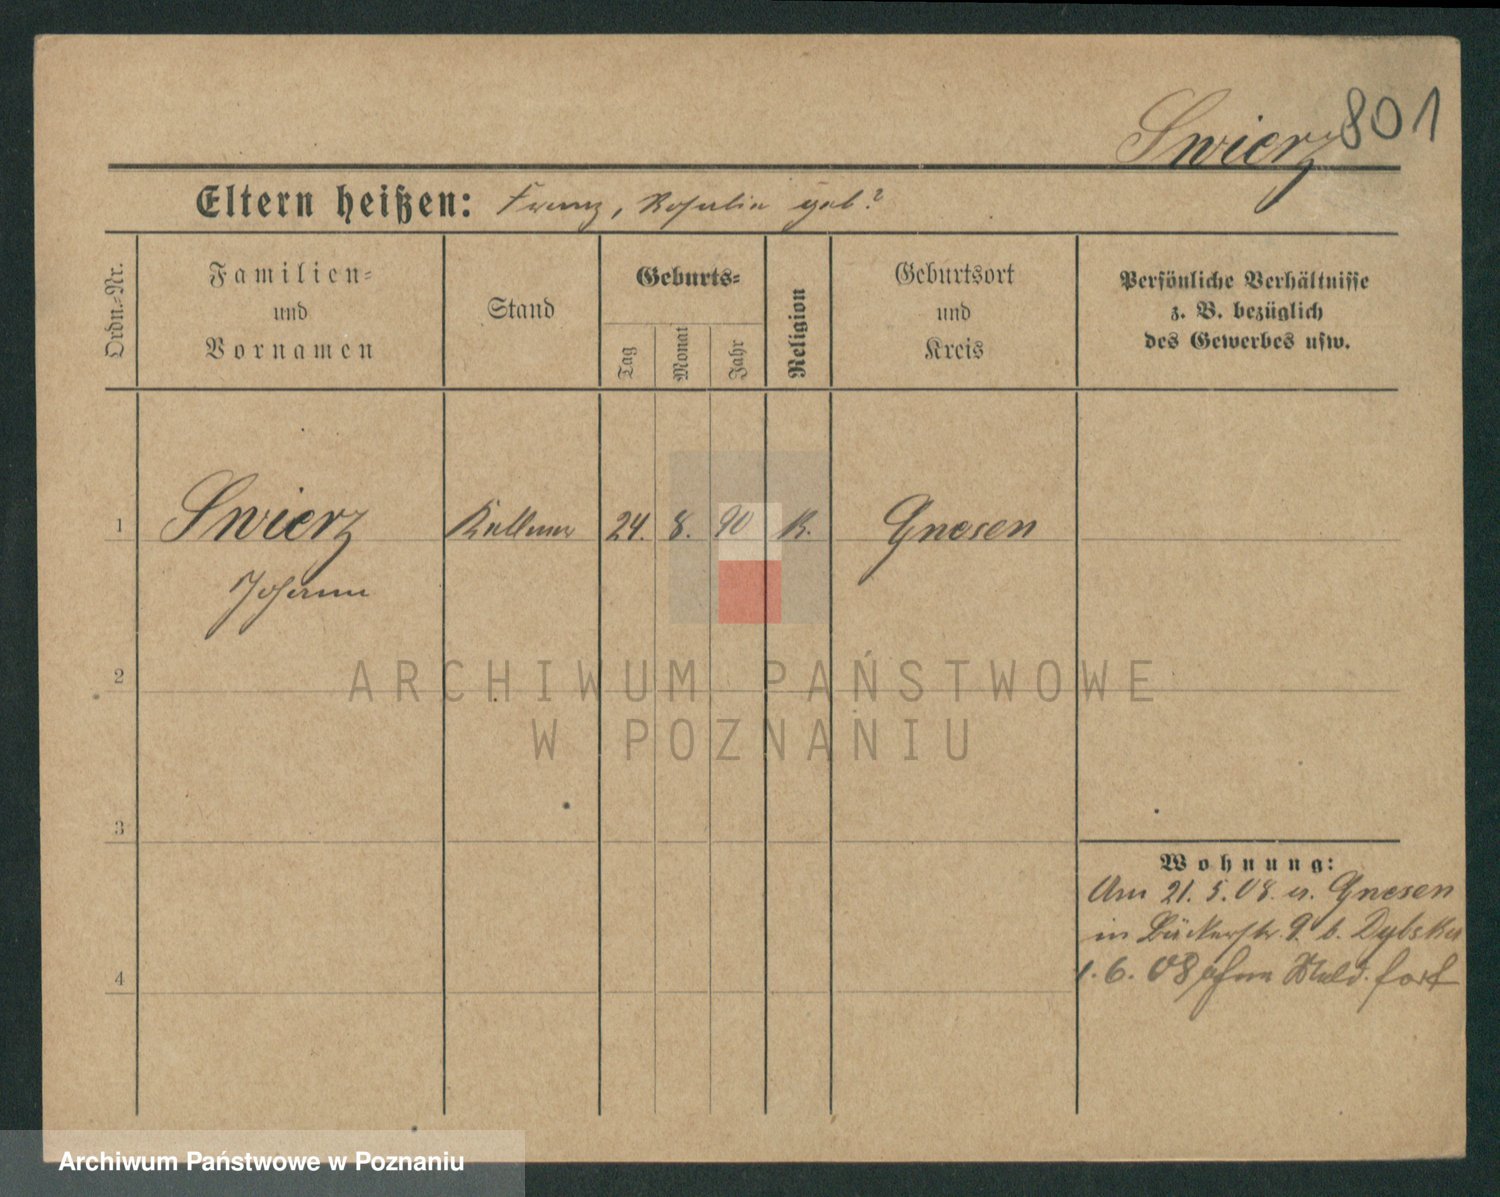 801
Swierz
Eltern heißen: Franz, Rosalie geb.?
Ordn.-Nr.
Familien-
und
Vornamen
Stand
Geburts-
Tag
Monat
Jahr
Religion
Geburtsort
und
Kreis
Persönliche Verhältnisse
z. B. bezüglich
des Gewerbes usw.
1 Swierz Kellner 24. 8. 90 K. Gnesen
Johann
2
ARCHIWUM PAŃSTWOWE
W POZNANIU
3
Wohnung:
Am 21. 5. 08. v. Gnesen
in Bäckerstr. 9. b. Dybska
4
1. 6. 08 ohne Meld. fort
Archiwum Państwowe w Poznaniu